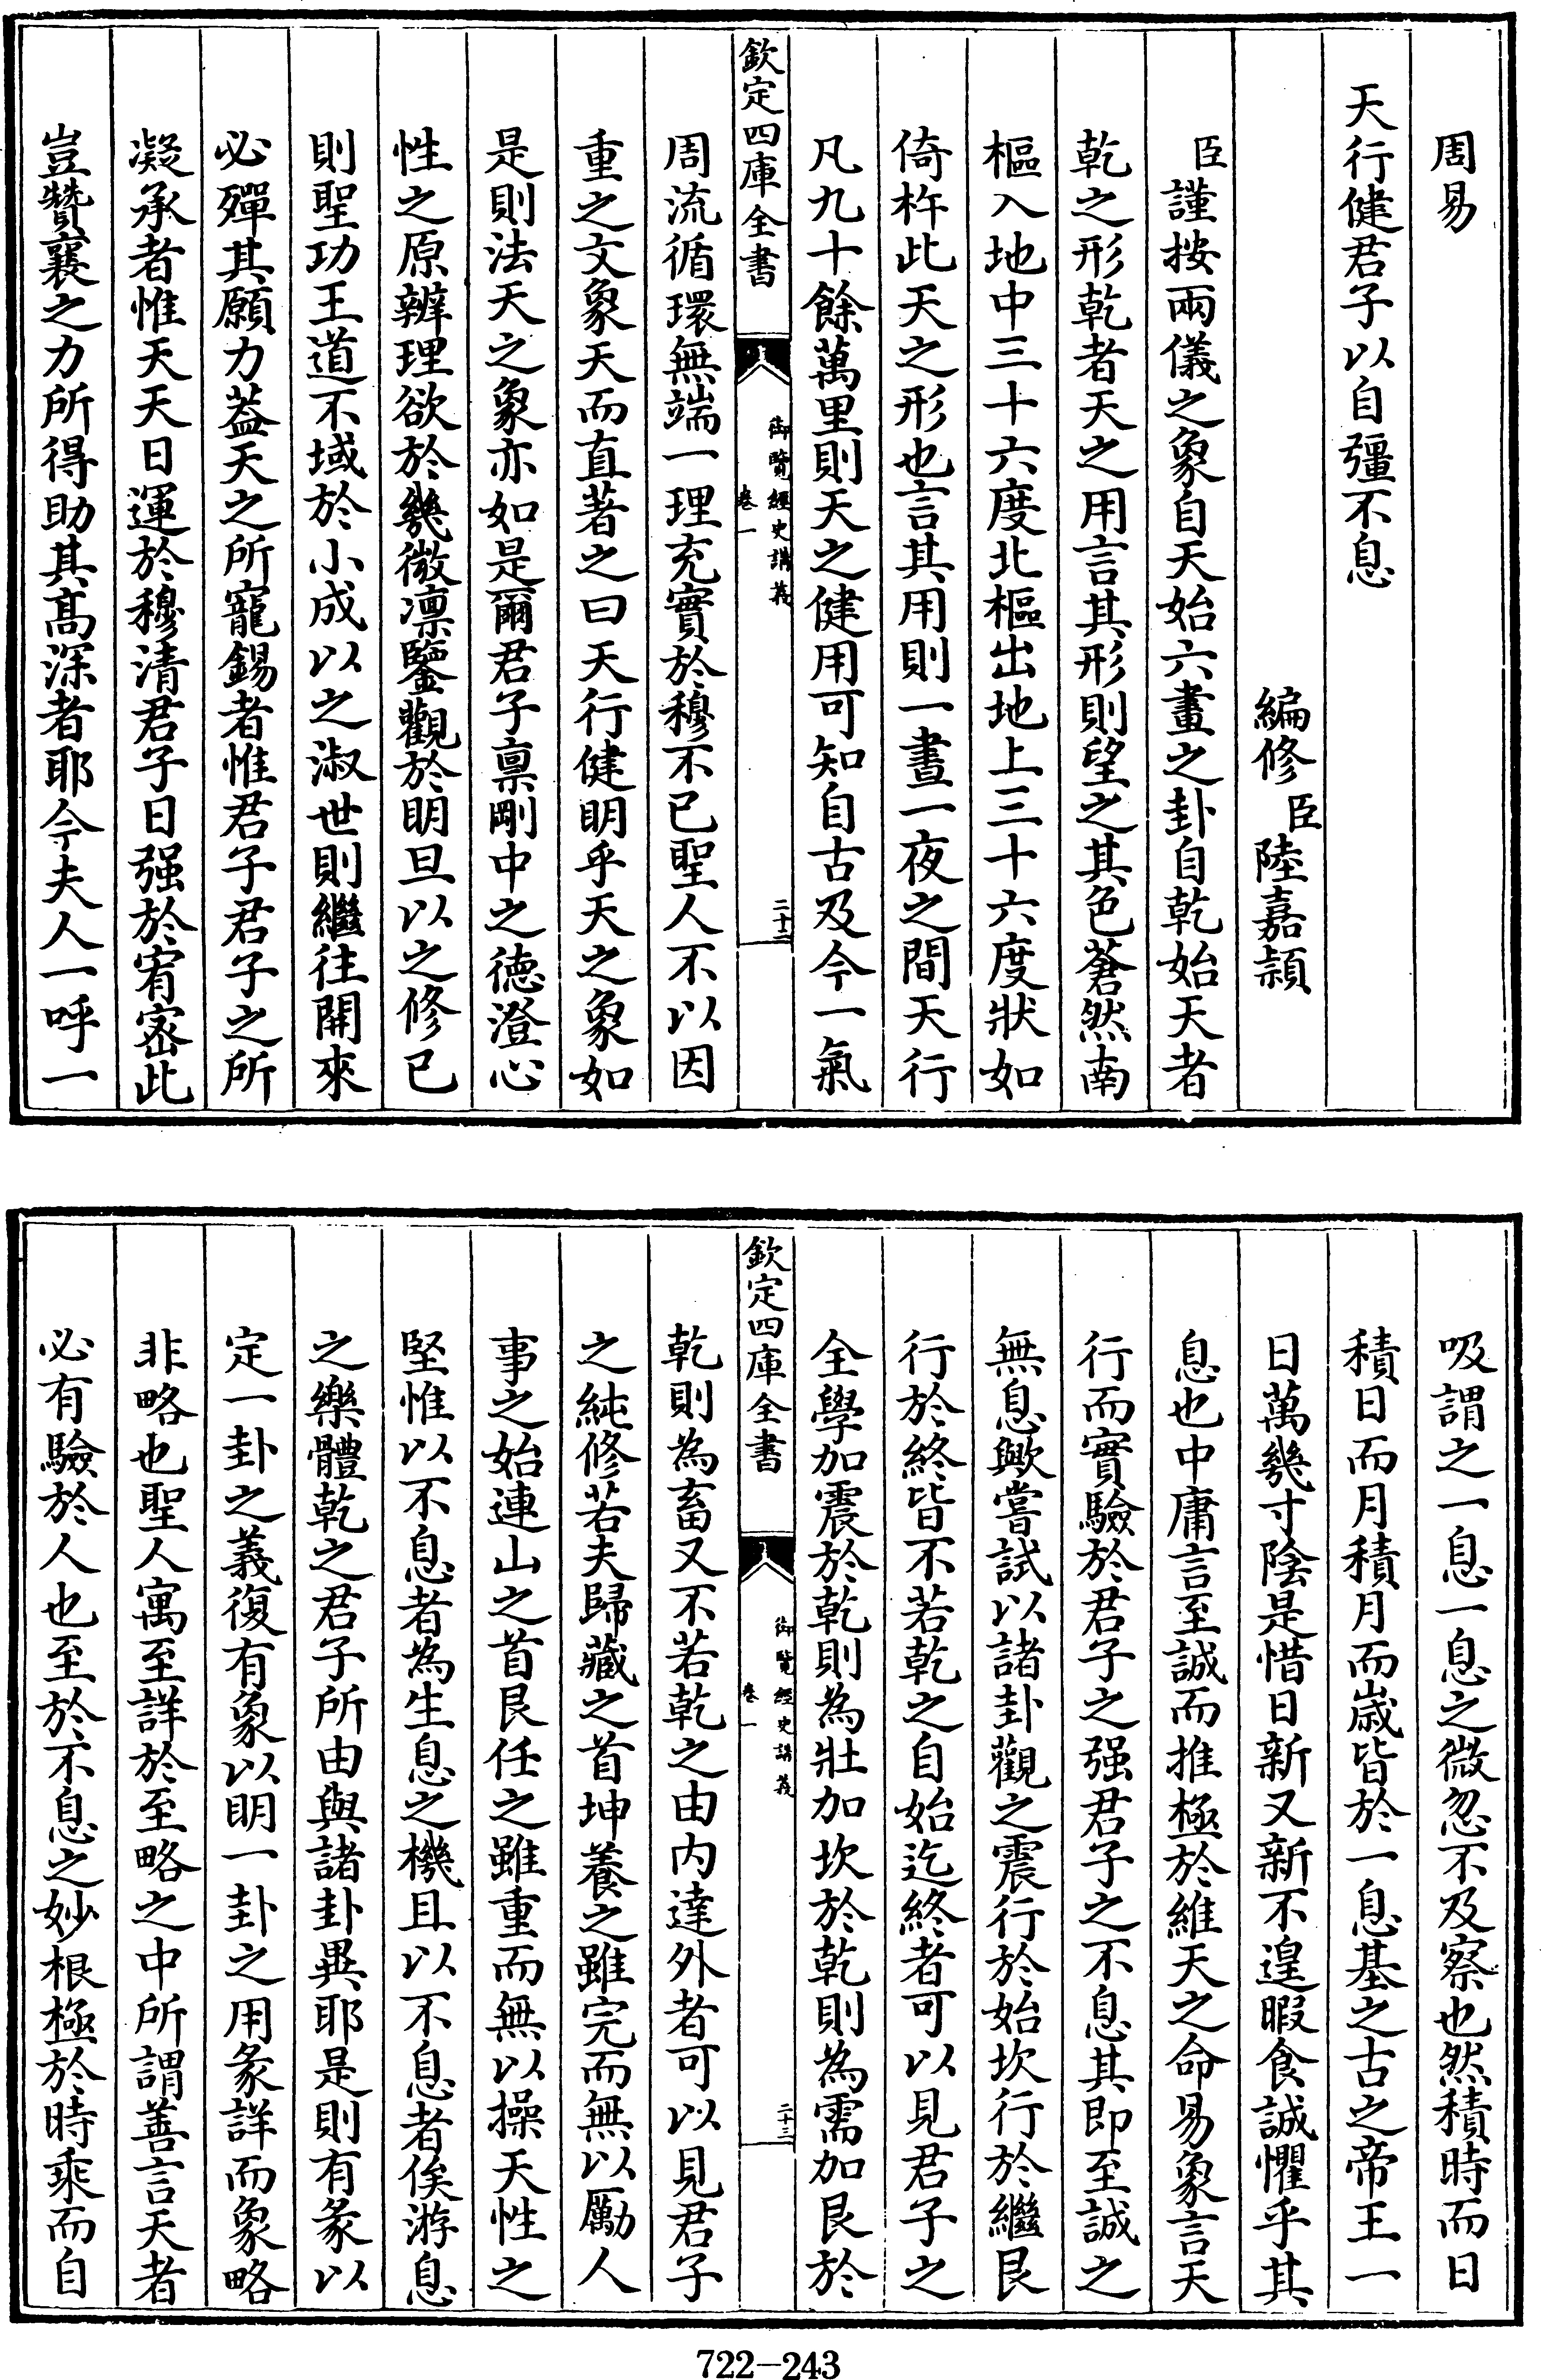 周易
天行健君子以自彊不息
編修臣陸嘉穎
臣謹按兩儀之象自天始六畫之卦自乾始天者
乾之形乾者天之用言其形則望之其色蒼然南
樞入地中三十六度北樞出地上三十六度狀如
倚杵此天之形也言其用則一晝一夜之間天行
凡九十餘萬里則天之健用可知自古及今一氣
欽定四庫全書
御覽經史講義
卷一
二十二
周流循環無端一理充實於穆不已聖人不以因
重之文象天而直著之曰天行健明乎天之象如
是則法天之象亦如是爾君子禀剛中之德澄心
性之原辨理欲於幾微凛鑒觀於明旦以之修已
則聖功王道不域於小成以之淑世則繼往開來
必殫其願力蓋天之所寵錫者惟君子君子之所
凝承者惟天天日運於穆清君子日强於宥密此
豈贊襄之力所得助其髙深者耶今夫人一呼一
吸謂之一息一息之微忽不及察也然積時而日
積日而月積月而嵗皆於一息基之古之帝王一
日萬幾寸陰是惜日新又新不遑暇食誠懼乎其
息也中庸言至誠而推極於維天之命易象言天
行而實驗於君子之强君子之不息其即至誠之
無息歟嘗試以諸卦觀之震行於始坎行於繼艮
行於終皆不若乾之自始迄終者可以見君子之
全學加震於乾則為壯加坎於乾則為需加艮於
欽定四庫全書
御覽經史講義
卷一
二十三
乾則為畜又不若乾之由内達外者可以見君子
之純修若夫歸藏之首坤養之雖完而無以勵人
事之始連山之首艮任之雖重而無以操天性之
堅惟以不息者為生息之機且以不息者俟游息
之樂體乾之君子所由與諸卦異耶是則有彖以
定一卦之義復有象以明一卦之用彖詳而象略
非略也聖人寓至詳於至略之中所謂善言天者
必有驗於人也至於不息之妙根極於時乘而自
722-243